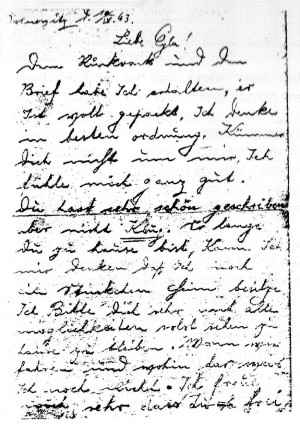 Liebe Ela!
Dein Rucksack und den
Brief habe Ich erhalten, er
Ist voll gepackt, Ich denke
in besten ordnung. Kümmer
dich nicht um mir, Ich
fühle mich ganz gut
Du hast sehr schön geschrieben
aber nicht So lange
du zu hause bist, kann Ich
mir denken das Ich noch
ein Stückchen Heim besitze
Ich Bitte Dich sehr und alle
möglichkeiten solst sehen zu
hause zu bleiben. Wann wir
fahren und wohin das weis
Ich noch nicht. Ich freu
mich sehr dass